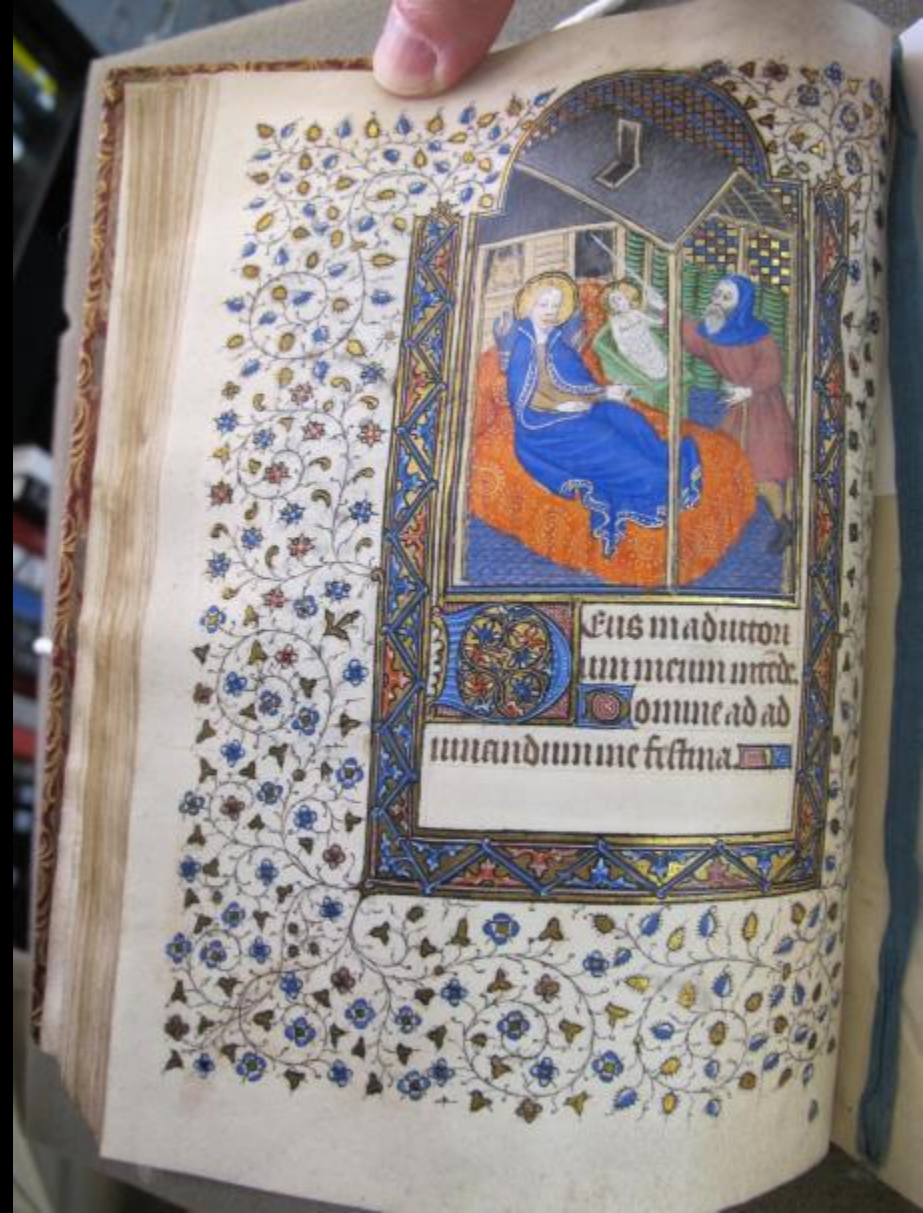 Deus in adiutori
um meum intende.
Domine ad ad
iuuandum me festina